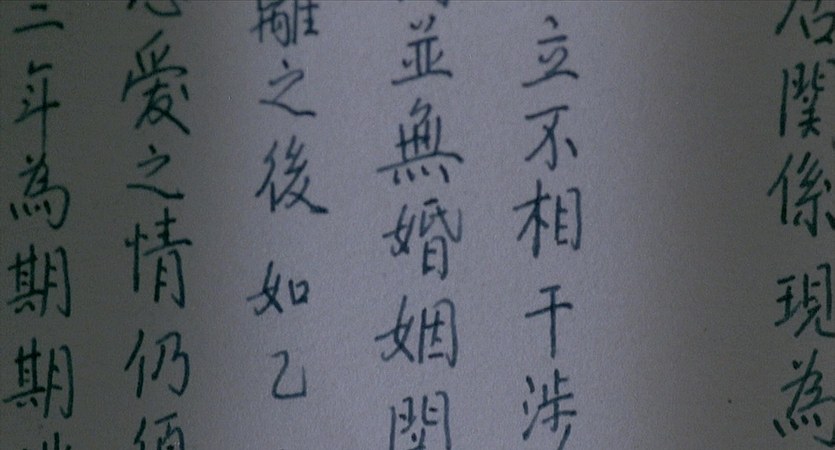 關係現為
立不相干涉
並無婚姻關
離之後如乙
愛之情仍
三年為期期